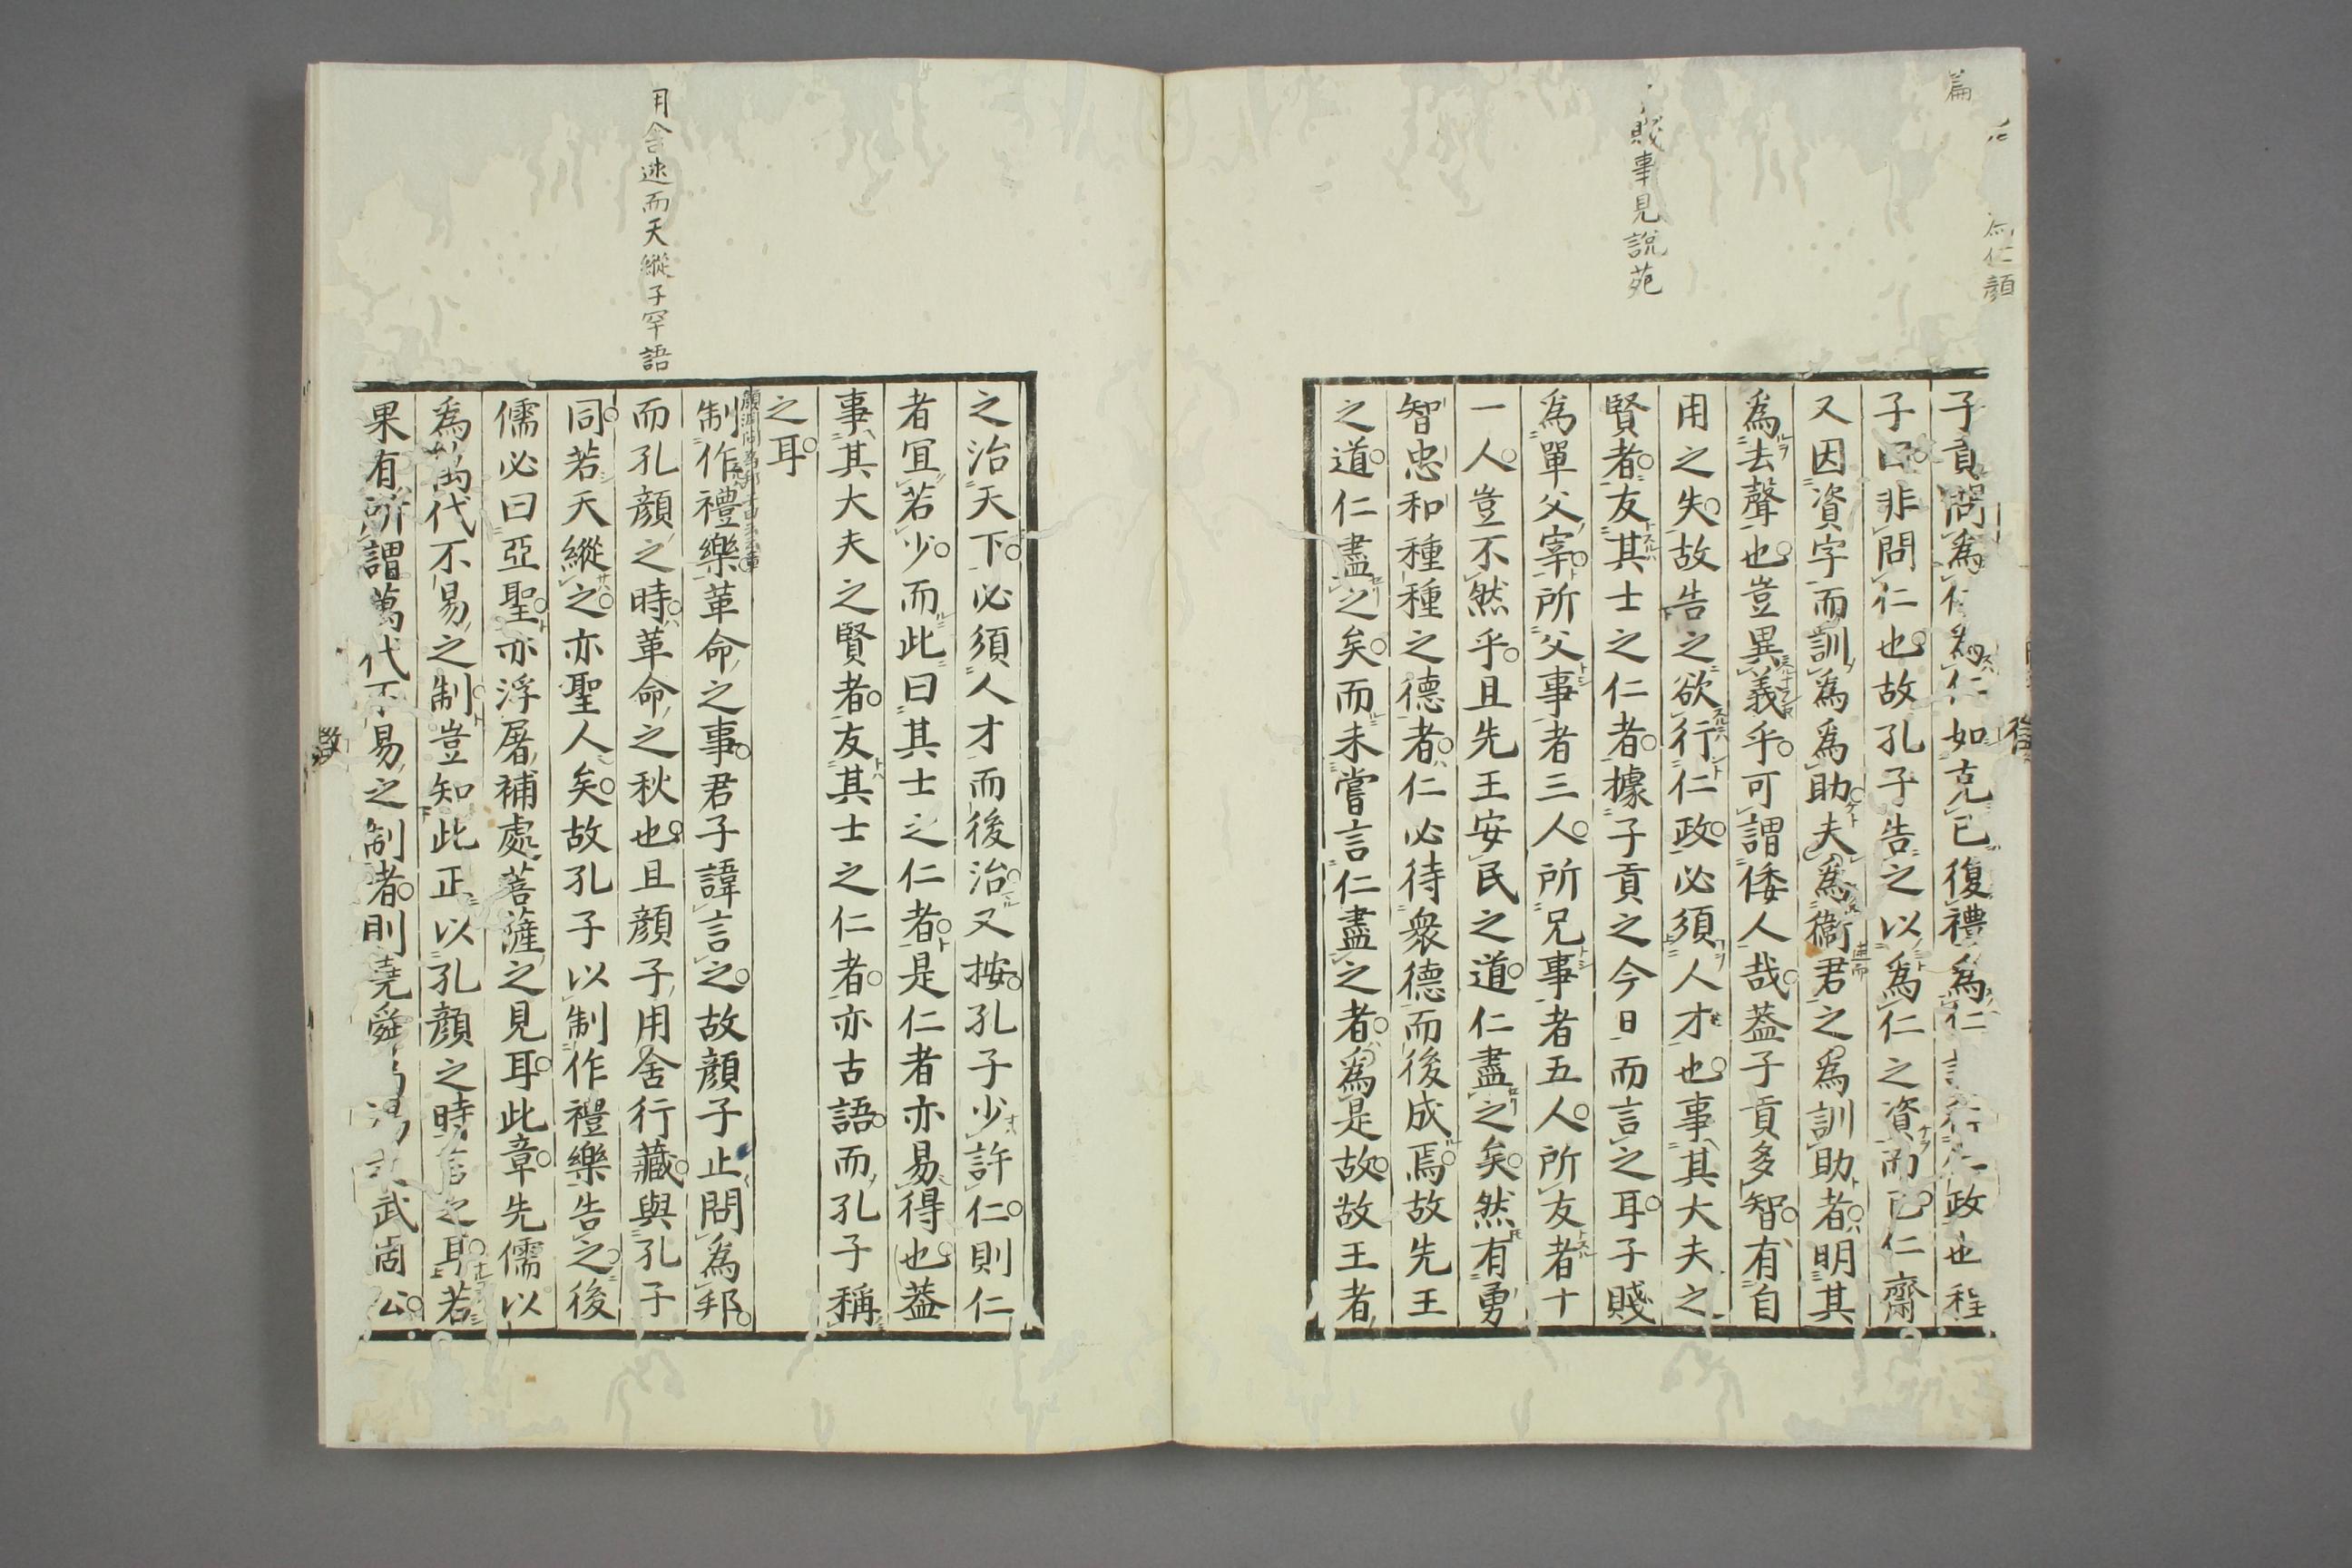 篇
為仁顔
賤事見說苑
子貢問為仁為仁如克己復禮為仁言行仁政也程
子曰非問仁也故孔子告之以為仁之資而已仁齋
又因資字而訓為為助夫為衞君之為訓助者明其
為去聲也豈異義乎可謂倭人哉蓋子貢多智有自
用之失故告之欲行仁政必須人才也事其大夫之
賢者友其士之仁者據子貢之今日而言之耳子賤
為單父宰所父事者三人所兄事者五人所友者十
一人豈不然乎且先王安民之道仁盡之矣然有勇
智忠和種種之德者仁必待衆德而後成焉故先王
之道仁盡之矣而未嘗言仁盡之者為是故故王者
用舍述而天縱子罕語
之治天下必須人才而後治又按孔子少許仁則仁
者宜若少而此曰其士之仁者是仁者亦易得也蓋
事其大夫之賢者友其士之仁者亦古語而孔子稱
之耳
顏淵問為邦
制作禮樂革命之事君子諱言之故顏子止問為邦
而孔顏之時革命之秋也且顏子用舍行藏與孔子
同若天縱之亦聖人矣故孔子以制作禮樂告之後
儒必曰亞聖亦浮屠補處菩薩之見耳此章先儒以
為萬代不易之制豈知此正以孔顏之時言之耳若
果有所謂萬代不易之制者則堯舜禹湯文武周公